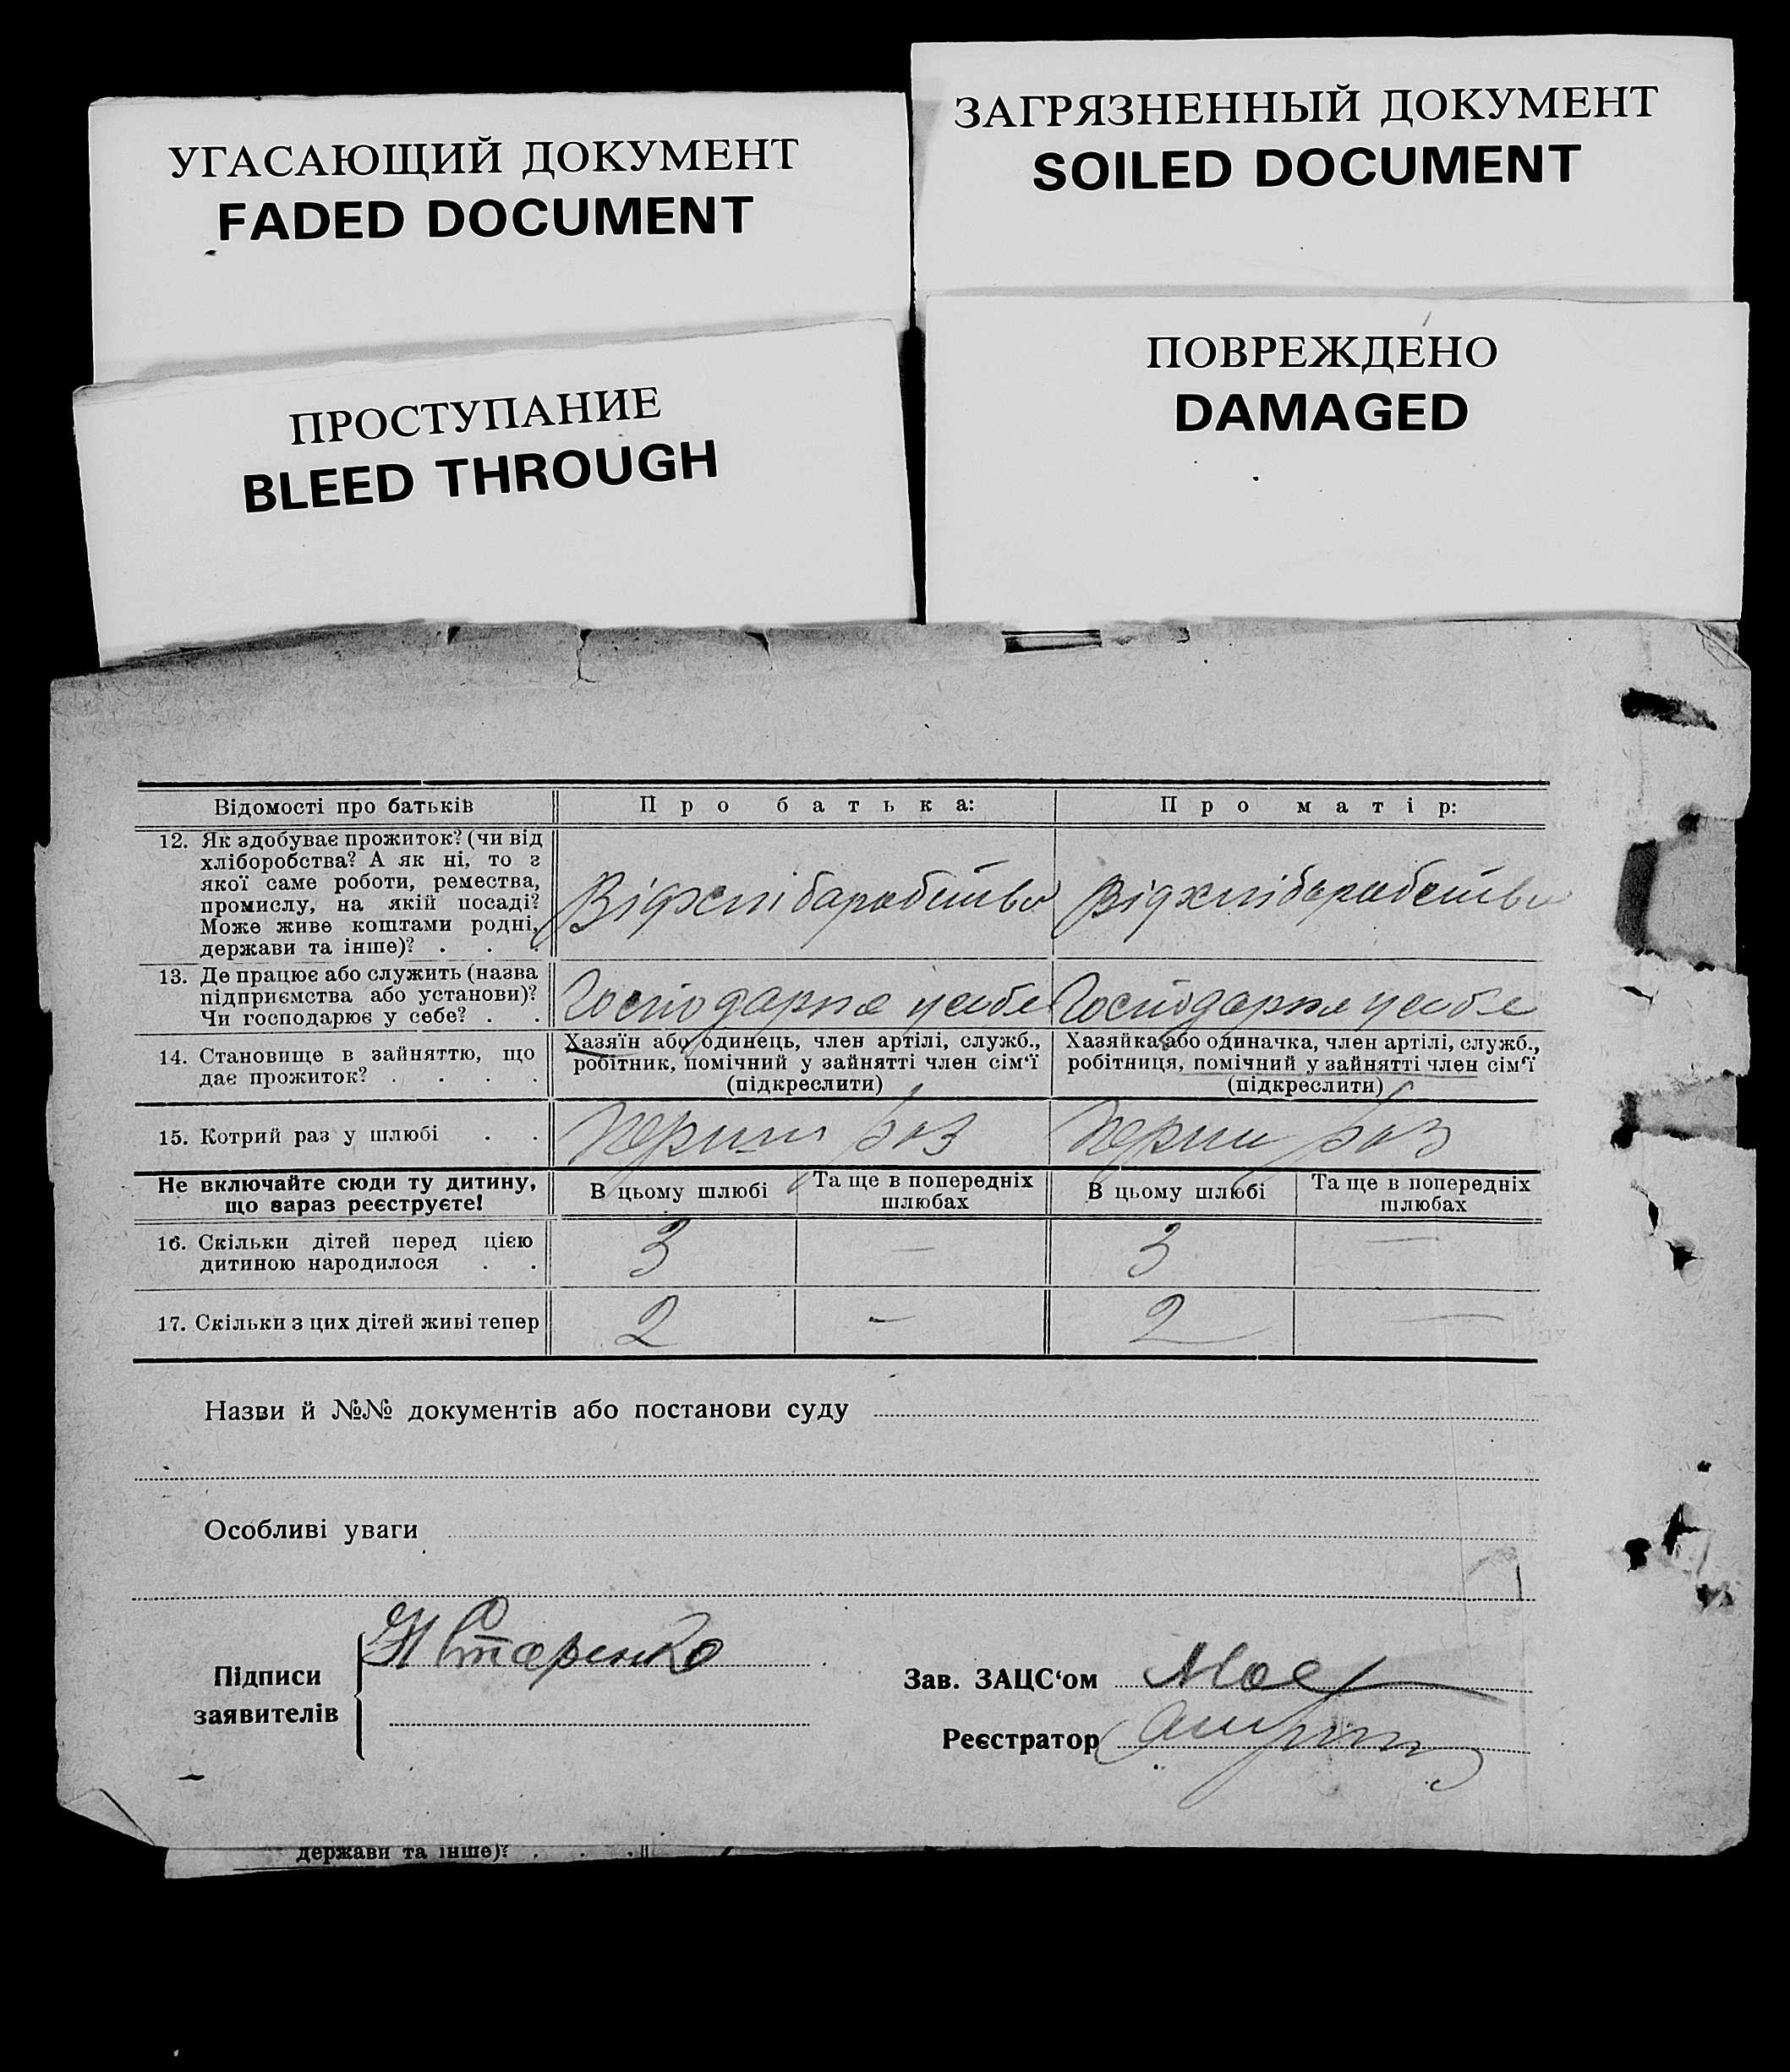 УГАСАЮЩИЙ ДОКУМЕНТ
FADED DOCUMENT
ЗАГРЯЗНЕННЫЙ ДОКУМЕНТ
SOILED DOCUMENT
ПРОСТУПАНИЕ
BLEED THROUGH
ПОВРЕЖДЕНО
DAMAGED
Відомості про батьків
Про батька:
Про матір:
12. Як здобуває прожиток? (чи від
хліборобства? А як ні, то з
якої саме роботи, ремества,
промислу, на якій посаді?
Може живе коштами родні,
держави та інше)? . . .
Відхліборобства
Відхліборобства
13. Де працює або служить (назва
підприємства або установи)?
Чи господарює у себе? . .
Господарює усебе
Господарює усебе
14. Становище в зайняттю, що
дає прожиток? . . . .
Хазяїн або одинець, член артілі, служб.,
робітник, помічний у зайнятті член сім‘ї
(підкреслити)
Хазяйка або одиначка, член артілі, служб.,
робітниця, помічний у зайнятті член сім‘ї
(підкреслити)
15. Котрий раз у шлюбі . .
перший раз
перший раз
Не включайте сюди ту дитину,
що зараз реєструєте!
В цьому шлюбі
Та ще в попередніх
шлюбах
В цьому шлюбі
Та ще в попередніх
шлюбах
16. Скільки дітей перед цією
дитиною народилося . .
3
—
3
—
17. Скільки з цих дітей живі тепер
2
-
2
—
Назви й №№ документів або постанови суду
Особливі уваги
Підписи
заявителів
Старенко
Зав. ЗАЦС‘ом
Реєстратор
держави та інше)? . . .